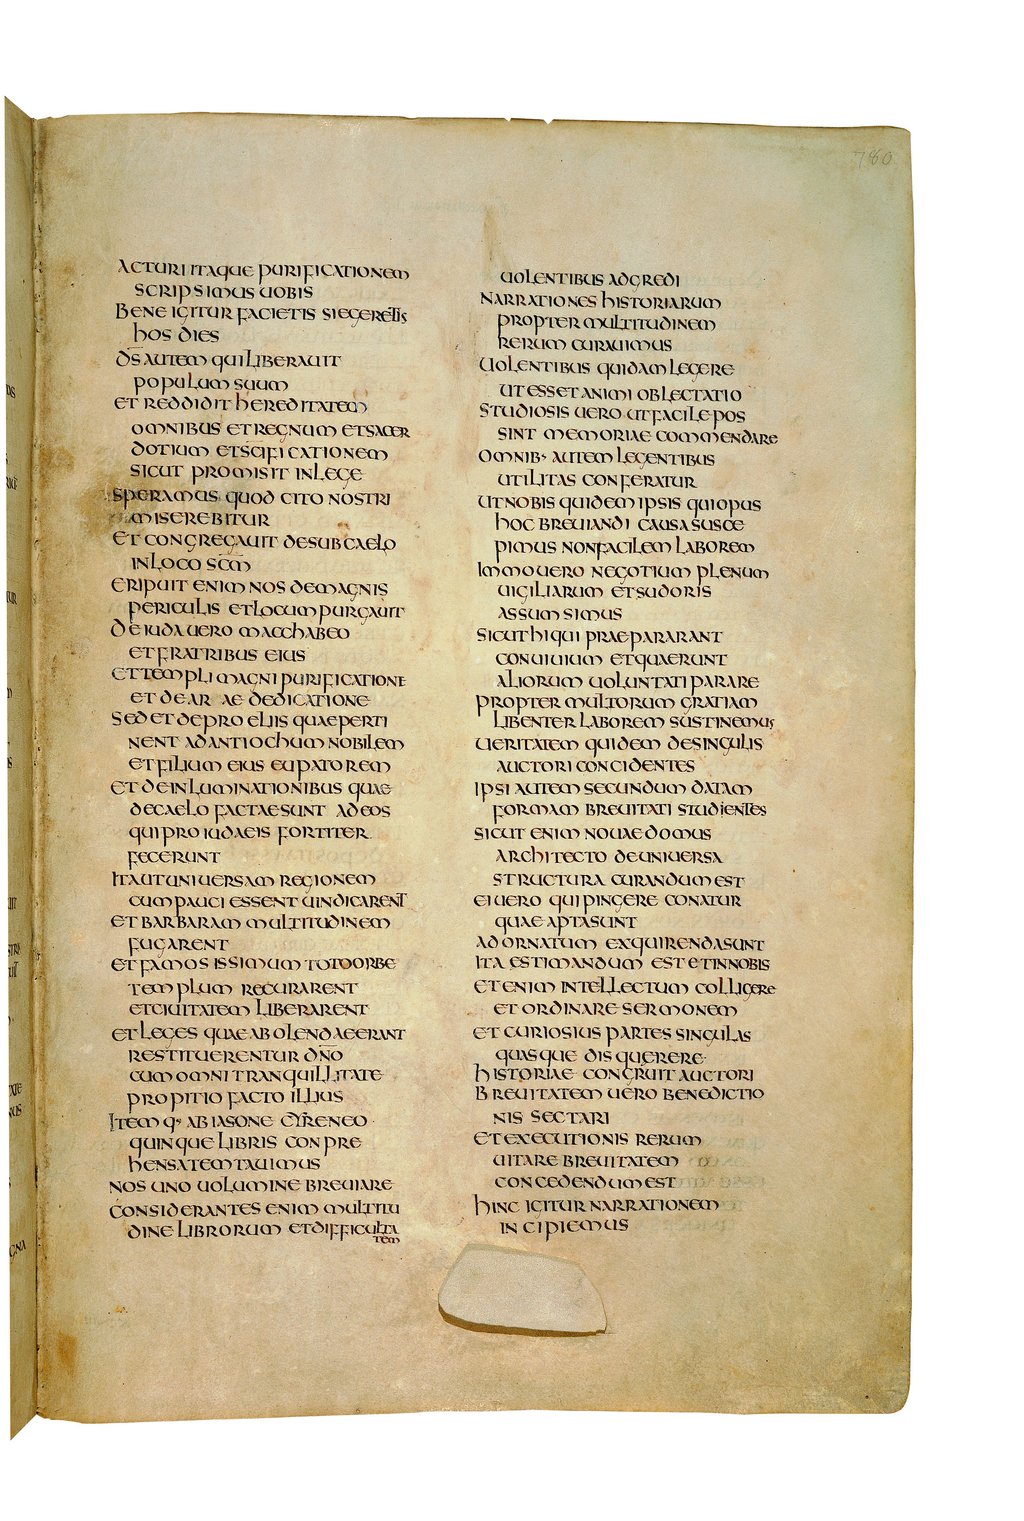 780
ACTURI ITAQUE PURIFICATIONEM
SCRIPSIMUS UOBIS
BENE IGITUR FACIETIS SI EGERETIS
HOS DIES
D̅S̅ AUTEM QUI LIBERAUIT
POPULUM SUUM
ET REDDIDIT HEREDITATEM
OMNIBUS ET REGNUM ET SACER
DOTIUM ET S̅C̅IFICATIONEM
SICUT PROMISIT IN LEGE
SPERAMUS QUOD CITO NOSTRI
MISEREBITUR
ET CONGREGAUIT DE SUB CAELO
IN LOCO S̅C̅M̅
ERIPUIT ENIM NOS DE MAGNIS
PERICULIS ET LOCUM PURGAUIT
DE IUDA UERO MACCHABEO
ET FRATRIBUS EIUS
ET TEMPLI MAGNI PURIFICATIONE
ET DE AR AE DEDICATIONE
SED ET DE PROELIIS QUAE PERTI
NENT AD ANTIOCHUM NOBILEM
ET FILIUM EIUS EUPATOREM
ET DE INLUMINATIONIBUS QUAE
DE CAELO FACTAE SUNT AD EOS
QUI PRO IUDAEIS FORTITER
FECERUNT
ITA UT UNIUERSAM REGIONEM
CUM PAUCI ESSENT UINDICARENT
ET BARBARAM MULTITUDINEM
FUGARENT
ET FAMOSISSIMUM TOTO ORBE
TEMPLUM RECURARENT
ET CIUITATEM LIBERARENT
ET LEGES QUAE ABOLENDAE ERANT
RESTITUERENTUR D̅N̅O
CUM OMNI TRANQUILLITATE
PROPITIO FACTO ILLIUS
ITEM Q· AB IASONE CYRENEO
QUINQUE LIBRIS CONPRE
HENSA TEMTAUIMUS
NOS UNO UOLUMINE BREUIARE
CONSIDERANTES ENIM MULTITU
DINE LIBRORUM ET DIFFICULTA
TEM
UOLENTIBUS ADGREDI
NARRATIONES HISTORIARUM
PROPTER MULTITUDINEM
RERUM CURAUIMUS
UOLENTIBUS QUIDAM LEGERE
UT ESSET ANIMI OBLECTATIO
STUDIOSIS UERO UT FACILE POS
SINT MEMORIAE COMMENDARE
OMNIB· AUTEM LEGENTIBUS
UTILITAS CONFERATUR
UT NOBIS QUIDEM IPSIS QUI OPUS
HOC BREUIANDI CAUSA SUSCE
PIMUS NON FACILEM LABOREM
IMMO UERO NEGOTIUM PLENUM
UIGILIARUM ET SUDORIS
ASSUMSIMUS
SICUT HI QUI PRAEPARARANT
CONUIUIUM ET QUAERUNT
ALIORUM UOLUNTATI PARARE
PROPTER MULTORUM GRATIAM
LIBENTER LABOREM SUSTINEMUS
UERITATEM QUIDEM DE SINGULIS
AUCTORI CONCIDENTES
IPSI AUTEM SECUNDUM DATAM
FORMAM BREUITATI STUDIENTES
SICUT ENIM NOUAE DOMUS
ARCHITECTO DE UNIUERSA
STRUCTURA CURANDUM EST
EI UERO QUI PINGERE CONATUR
QUAE APTA SUNT
AD ORNATUM EXQUIRENDA SUNT
ITA ESTIMANDUM EST ET IN NOBIS
ETENIM INTELLECTUM COLLIGERE
ET ORDINARE SERMONEM
ET CURIOSIUS PARTES SINGULAS
QUASQUE DISQUERERE
HISTORIAE CONGRUIT AUCTORI
BREUITATEM UERO BENEDICTIO
NIS SECTARI
ET EXECUTIONIS RERUM
UITARE BREUITATEM
CONCEDENDUM EST
HINC IGITUR NARRATIONEM
INCIPIEMUS